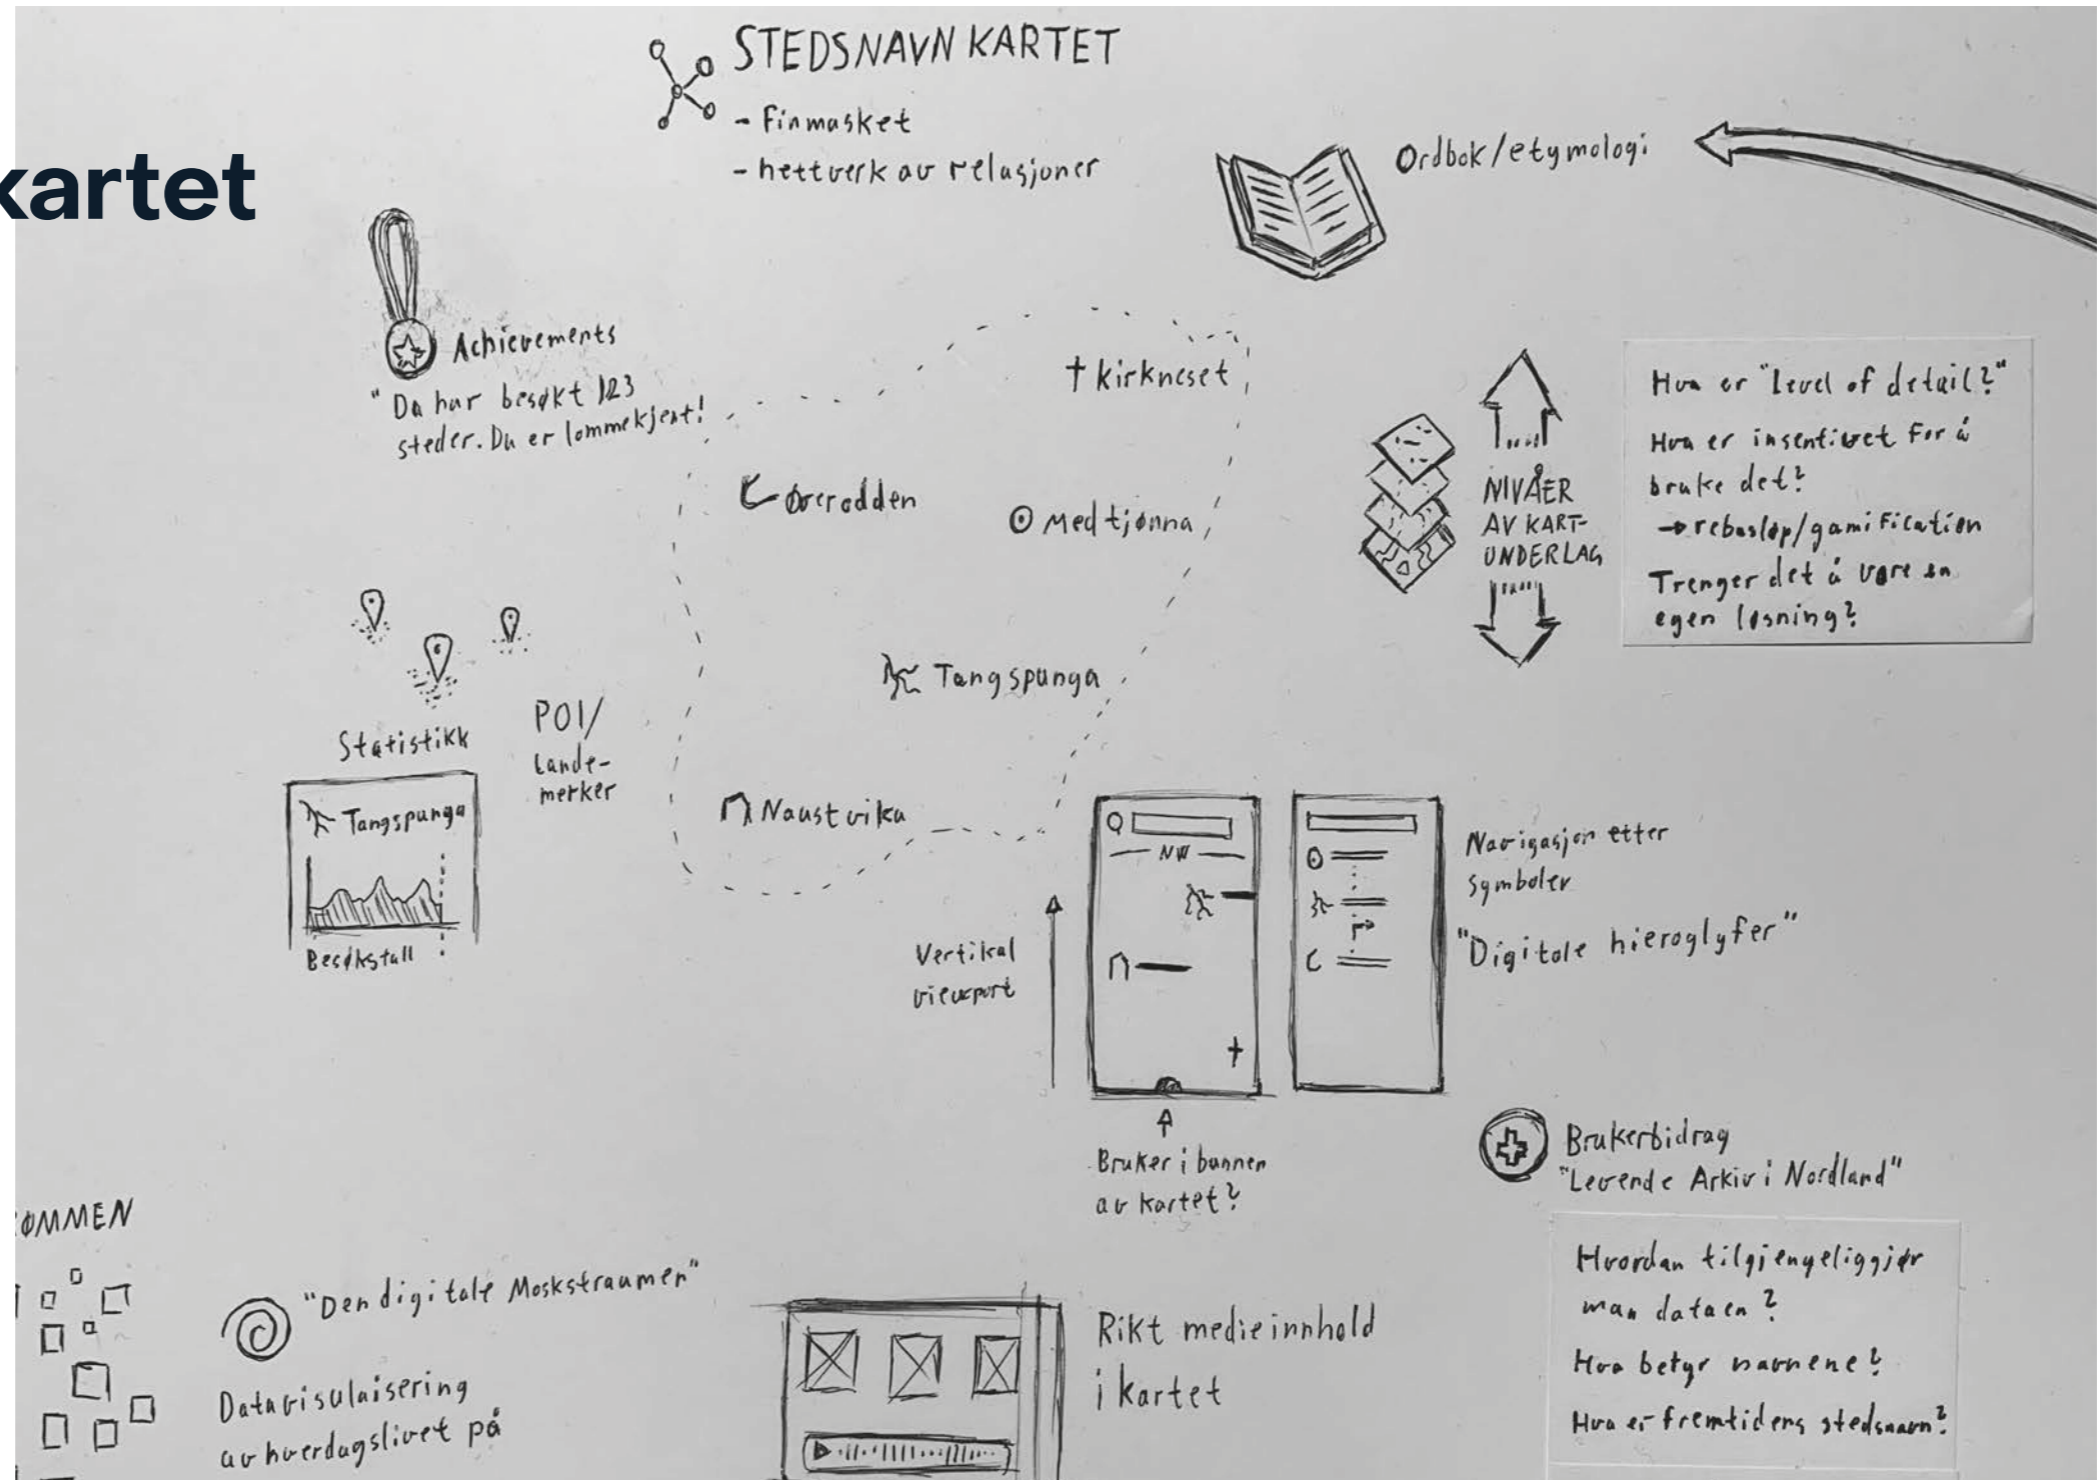 kartet
STEDSNAVN KARTET
- Finmasket
- nettverk av relasjoner
Ordbok/etymologi
Achievements
"Du har besøkt 123
steder. Du er lommekjent!
† Kirkneset
Øverodden
Medtjønna
Tangspunga
Naustvika
NIVÅER
AV KART-
UNDERLAG
Hva er "Level of detail?"
Hva er insentivet for å
bruke det?
→ rebusløp/gamification
Trenger det å være en
egen løsning?
POI/
Lande-
merker
Statistikk
Tangspunga
Besøkstall
NW
Vertikal
viewport
Bruker i bunnen
av kartet?
Navigasjon etter
symboler
"Digitale hieroglyfer"
Brukerbidrag
"Levende Arkiv i Nordland"
Hvordan tilgjengeliggjør
man dataen?
Hva betyr navnene?
Hva er fremtidens stedsnavn?
ØMMEN
"Den digitale Moskstraumen"
Datavisulaisering
av hverdagslivet på
Rikt medieinnhold
i kartet